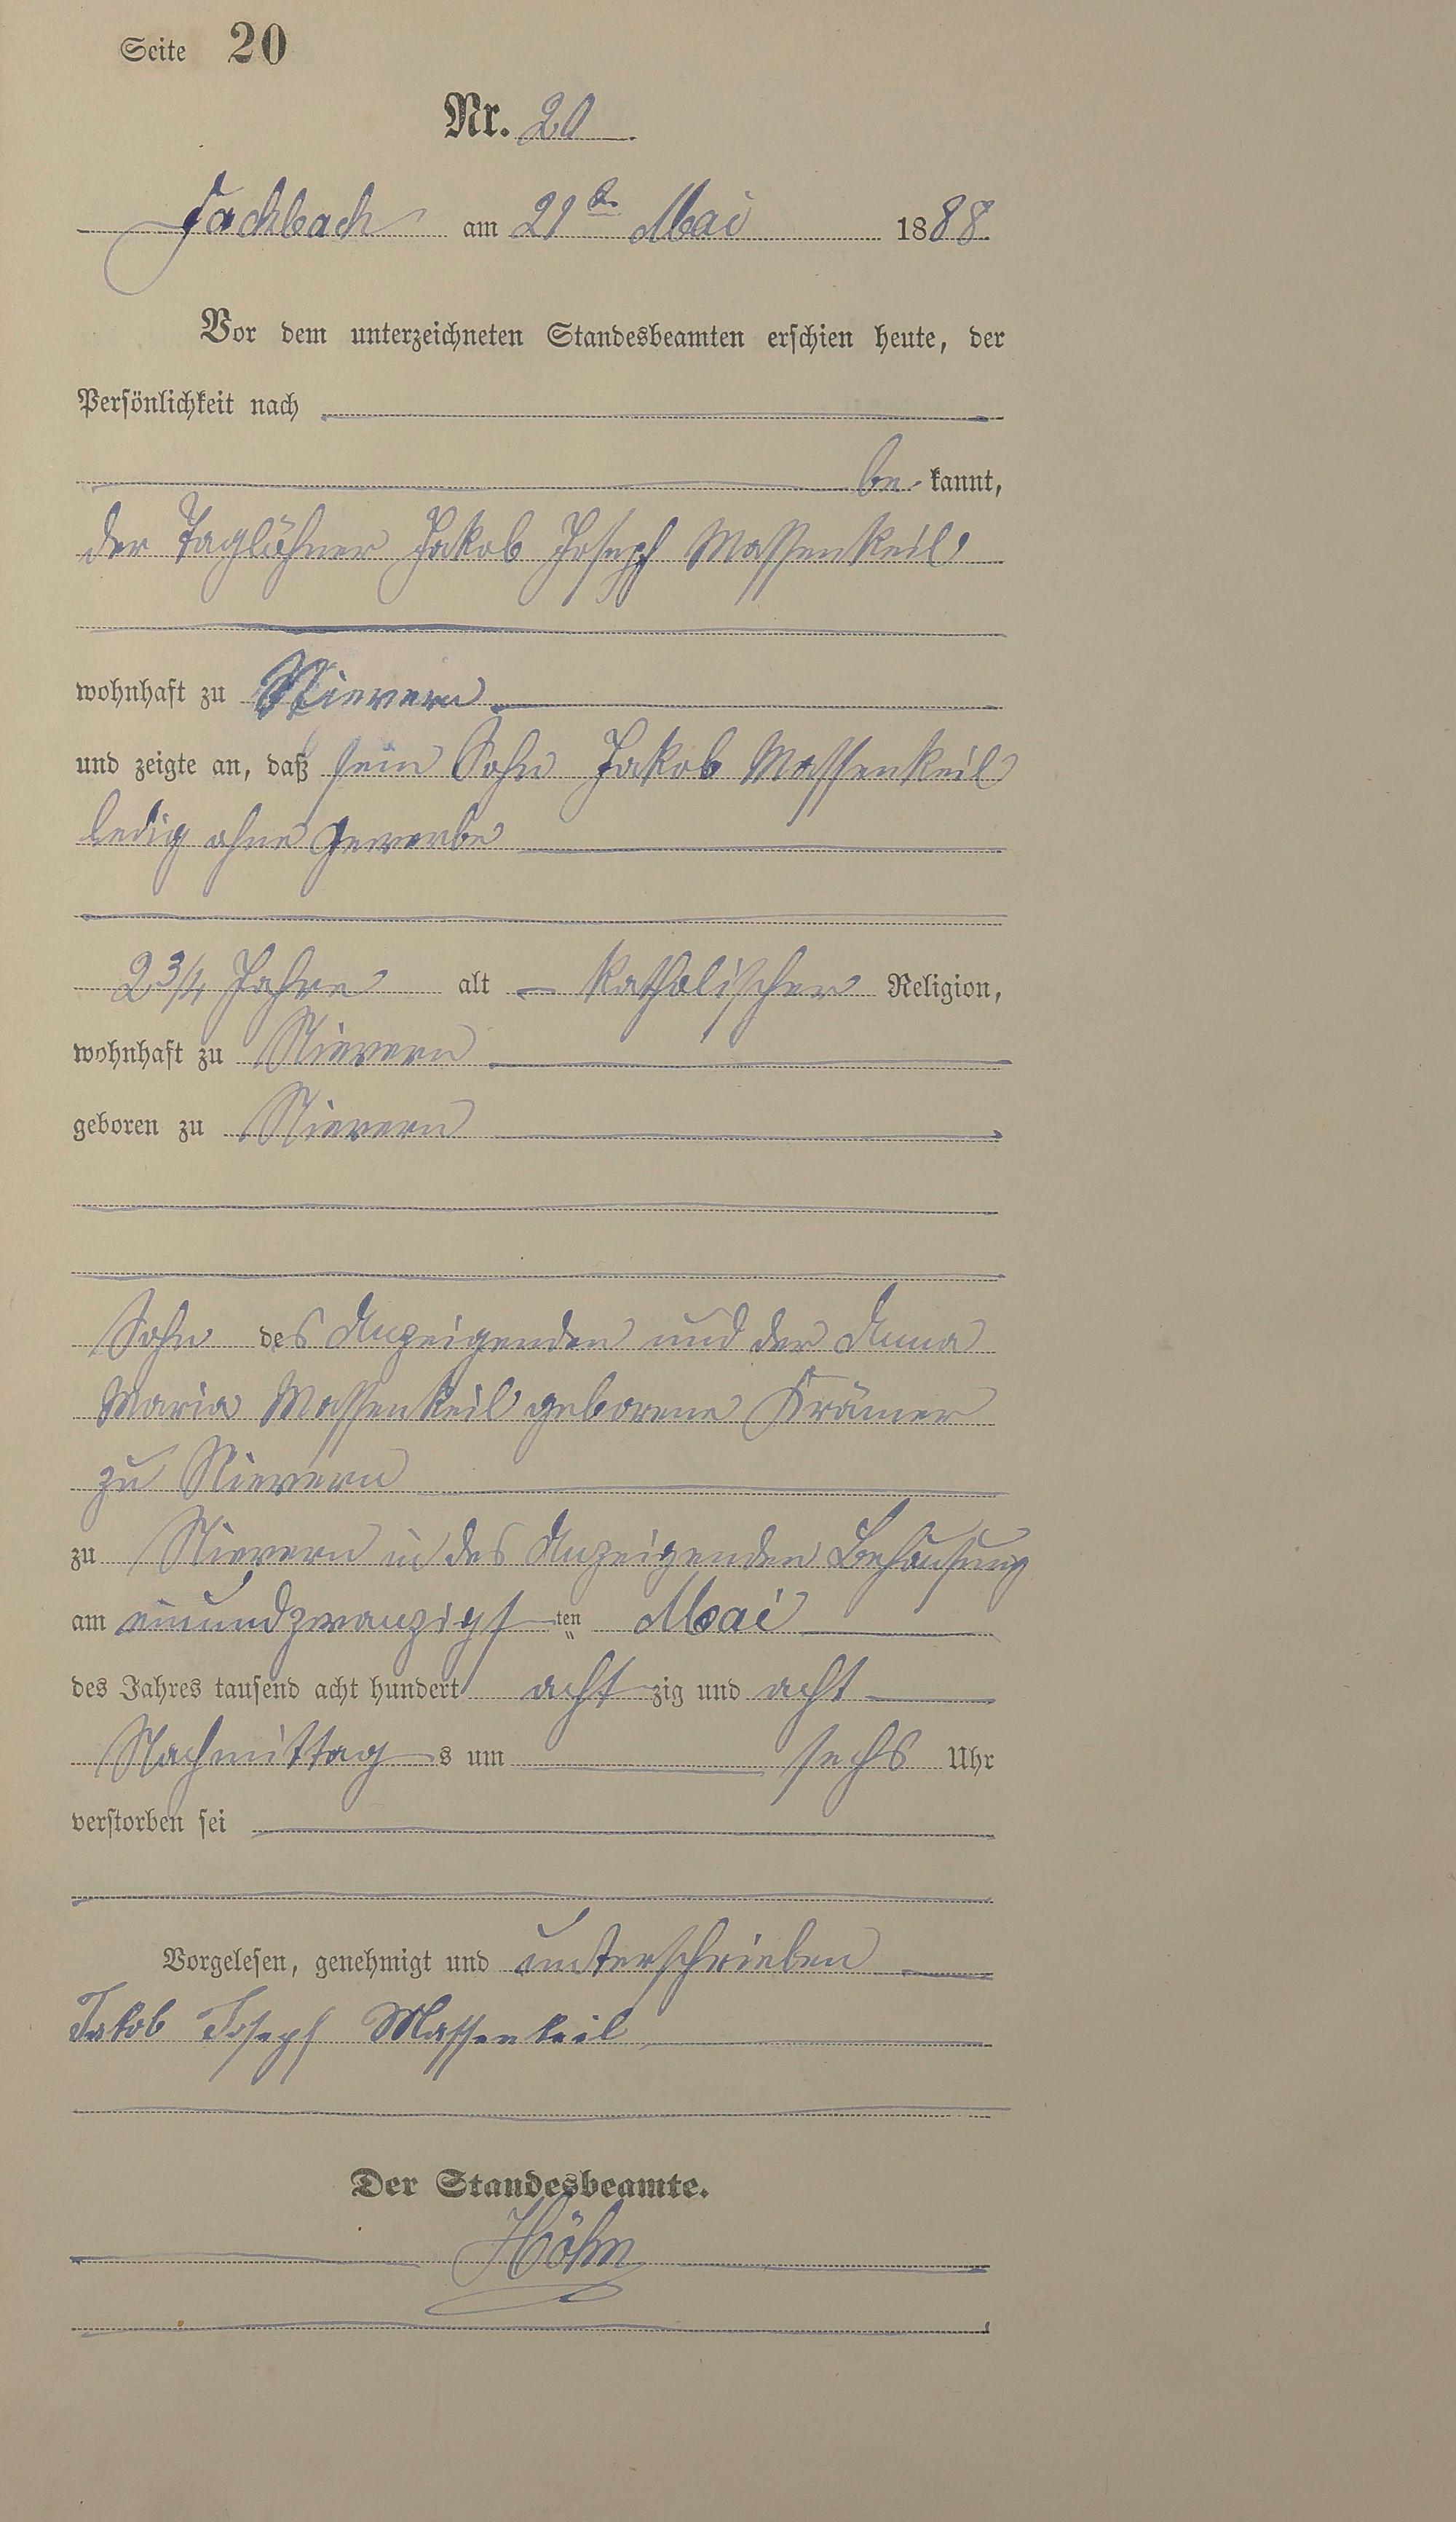 Seite 20
Nr. 20
Fachbach am 21ten Mai 1888.
Vor dem unterzeichneten Standesbeamten erschien heute, der
Persönlichkeit nach
be kannt,
der Taglöhner Jakob Joseph Massenkeil
wohnhaft zu Nievern
und zeigte an, daß sein Sohn Jakob Massenkeil
ledig ohne Gewerbe
2 3/4 Jahre alt katholischer Religion,
wohnhaft zu Nievern
geboren zu Nievern
Sohn des Anzeigenden und der Anna
Maria Massenkeil geborene Krämer
zu Nievern
zu Nievern in des Anzeigenden Behausung
am einundzwanzigst ten Mai
des Jahres tausend acht hundert acht zig und acht
Nachmittag s um sechs Uhr
verstorben sei
Vorgelesen, genehmigt und unterschrieben
Jakob Joseph Massenkeil
Der Standesbeamte.
Höhn